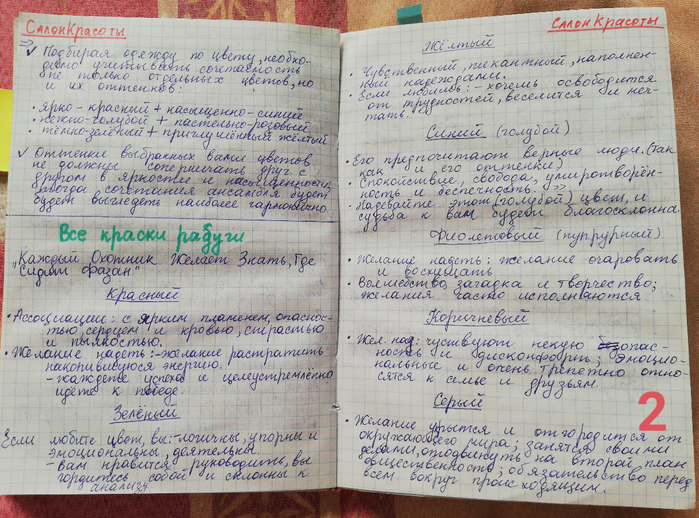 Салон Красоты
✓ Подбирая одежду по цвету, необхо-
димо учитывать сочетаемость
не только отдельных цветов, но
и их оттенков:
• ярко-красный + насыщенно-синий
• нежно-голубой + пастельно-розовый
• тёмно-зелёный + приглушённый жёлтый
✓ Оттенки выбранных вами цветов
не должны соперничать друг с
другом в яркости и насыщенности,
тогда сочетания ансамбля будет
будет выглядеть наиболее гармонично.
Все краски радуги
"Каждый Охотник Желает Знать, Где
Сидит Фазан"
Красный
• Ассоциации: с ярким пламенем, опаснос-
тью, сердцем и кровью, страстью
и пылкостью.
• Желание надеть: - желание растратить
накопившуюся энергию.
- жаждете успеха и целеустремлённо
идёте к победе.
Зелёный
Если любите цвет, вы: - логичны, упорны и
эмоциональны, деятельны.
- Вам нравится руководить, вы
гордитесь собой и склонны к
анализу
Салон Красоты
Жёлтый
• Чувственный, пикантный, наполнен-
ный надеждами.
• Если любишь: - хочешь освободится
от трудностей, веселится и меч-
тать.
Синий (голубой)
• Его предпочитают верные люди. (так
как и его оттенки)
• Спокойствие, свобода, умиротворён-
ность и беспечность.
• Надевайте этот (голубой) цвет, и
судьба к вам будет благосклонна.
Фиолетовый (пурпурный)
• Желание надеть: желание очаровать
и восхищать
• Волшебство, загадка и творчество;
желания часто исполняются.
Коричневый
• Жел. над: чуствуют некую безопас-
ность и дискомфорт; эмоцио-
нальные и очень трепетно отно-
сятся к семье и друзьям.
Серый
• Желание укрытся и отгородится от
окружающего мира; занятся своими
делами, отодвинуть на второй план
общественность; обязательство перед
всем вокруг происходящим.
2